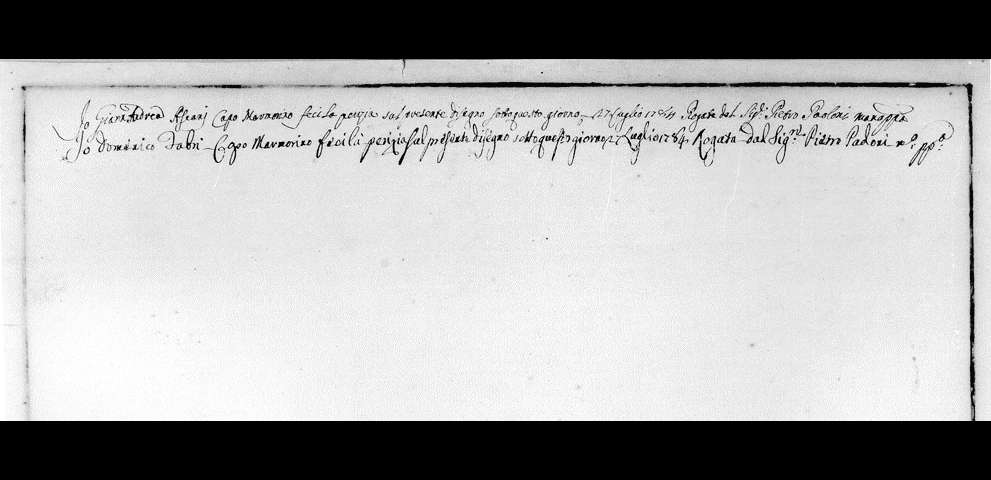 Io Giann Andrea Capo Marmorino feci la perizia sul presente disegno sotto questo giorno 27 Luglio 1764 Rogata dal Sig.r Pietro
Io Domenico Fabri Capo Marmorino feci la perizia sul presente disegno sotto questo giorno 27 Luglio 1764 Rogata dal Sig.re Pietro Padoni